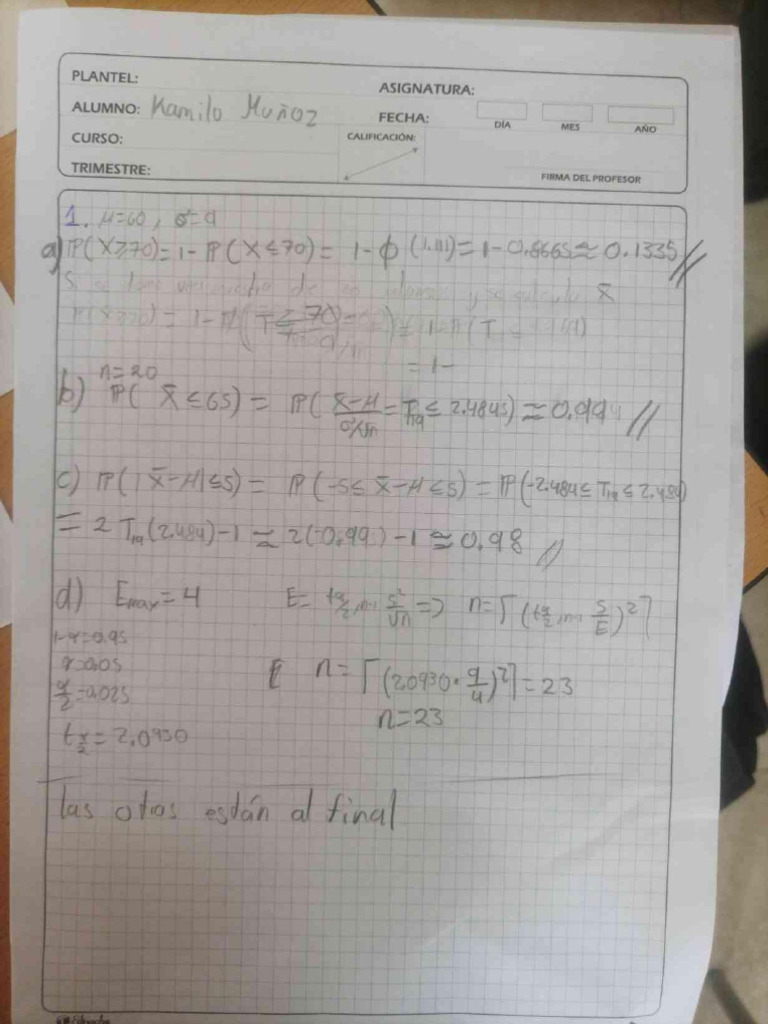 PLANTEL:
ASIGNATURA:
ALUMNO: Kamilo Muñoz
FECHA:
DÍA MES AÑO
CURSO:
CALIFICACIÓN:
TRIMESTRE:
FIRMA DEL PROFESOR
1. μ=60, σ=9
a) ℙ(X≥70)=1-ℙ(X≤70)= 1-Φ(1.111)=1-0.8665≈0.1335//
S se toma de y se calcula x̄
= 1-
n=20
b) ℙ(x̄≤65)= ℙ(x̄-μ/σ/√n = T19 ≤ 2.4845)≈0.994//
c) ℙ(|x̄-μ|≤5)= ℙ(-5≤x̄-μ≤5)=ℙ(-2.484≤T19≤2.484)
= 2T19(2.484)-1≈2(0.99)-1≈0.98 //
d) Emax=4 E= tα/2,n-1 S²/√n => n=⌈(tα/2,n-1 S/E)²⌉
1-α=0.95
α=0.05 n=⌈(2.0930·9/4)²⌉=23
α/2=0.025
n=23
tα/2=2.0930
las otras están al final